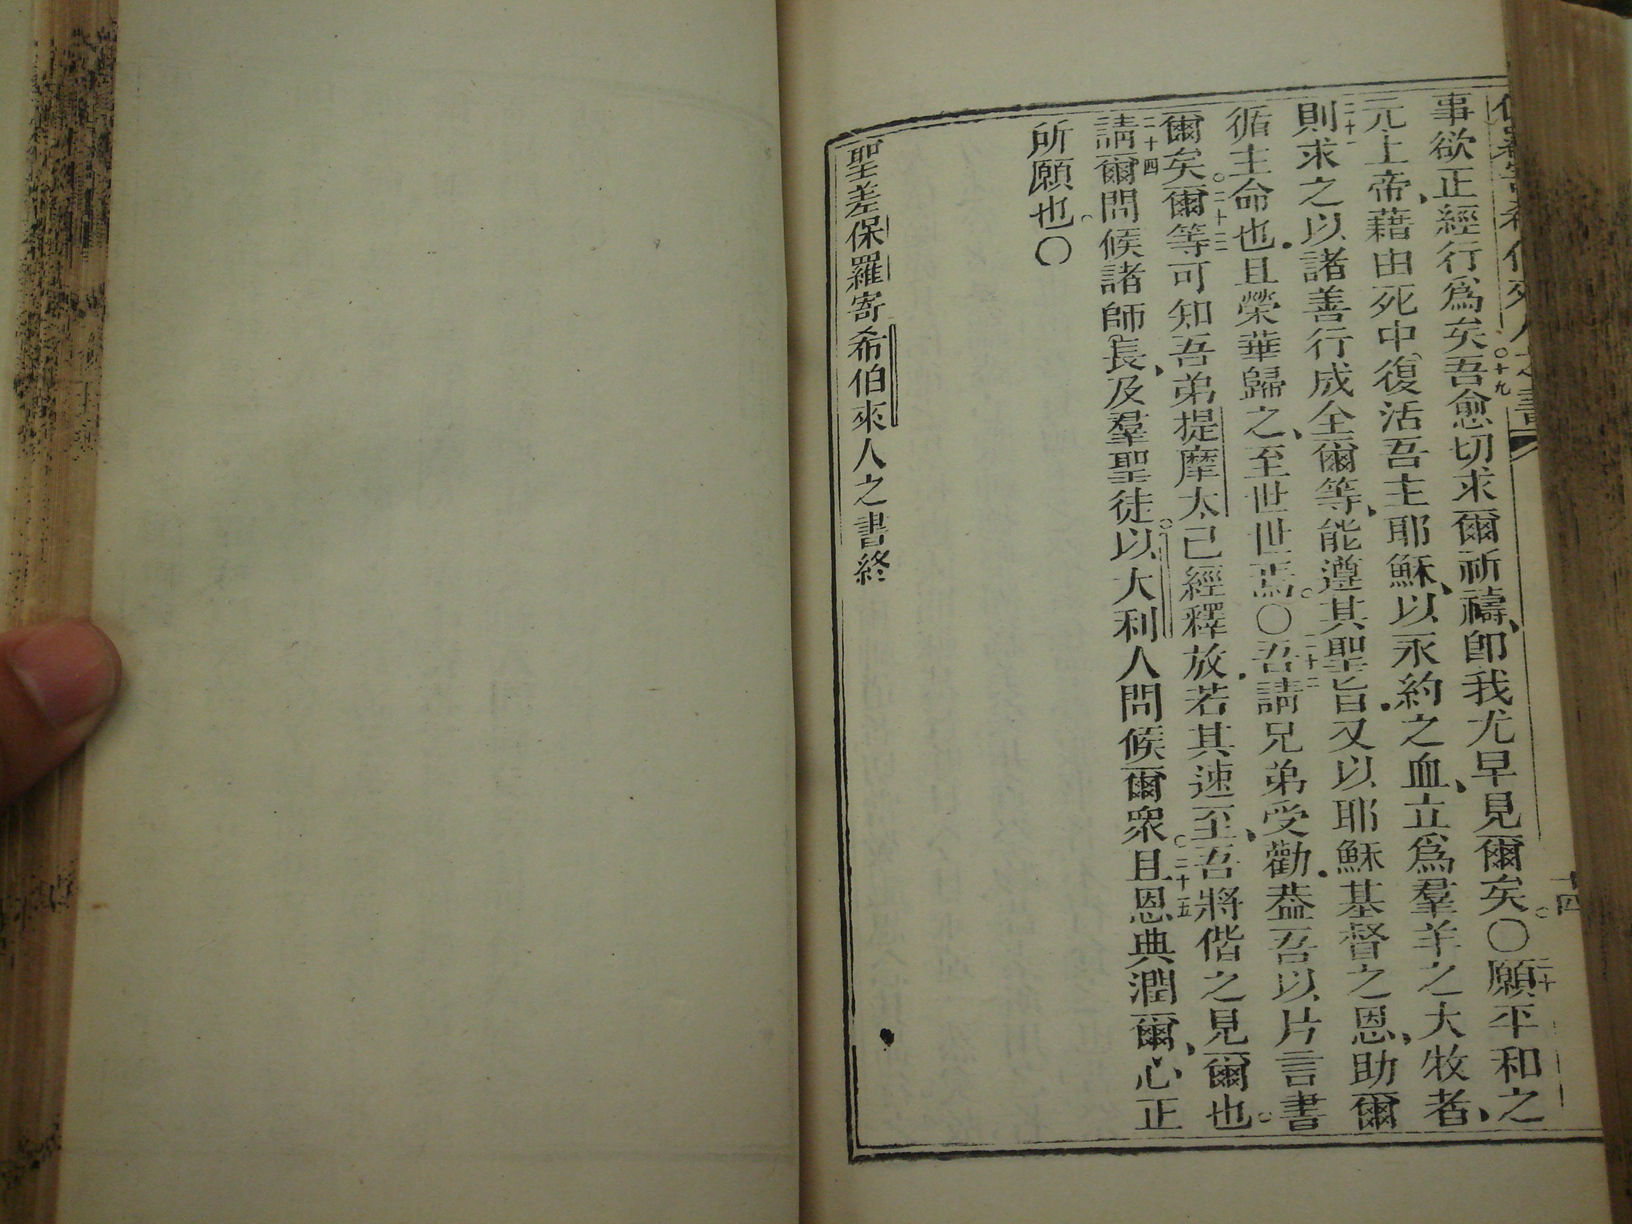 事欲正經行爲矣○十九吾愈切求爾祈禱、卽我尤早見爾矣。○二十願平和之
元上帝、藉由死中復活吾主耶穌、以永約之血、立爲羣羊之大牧者、
二十一則求之以諸善行成全爾等、能遵其聖旨.又以耶穌基督之恩、助爾
循主命也.且榮華歸之、至世世焉。○二十二吾請兄弟受勸.葢吾以片言書
爾矣。○二十三爾等可知吾弟提摩太已經釋放.若其速至、吾將偕之見爾也。
二十四請爾問候諸師長、及羣聖徒。以大利人問候爾衆○二十五且恩典潤爾、心、正
所願也。○
聖差保羅寄希伯來人之書終
十四